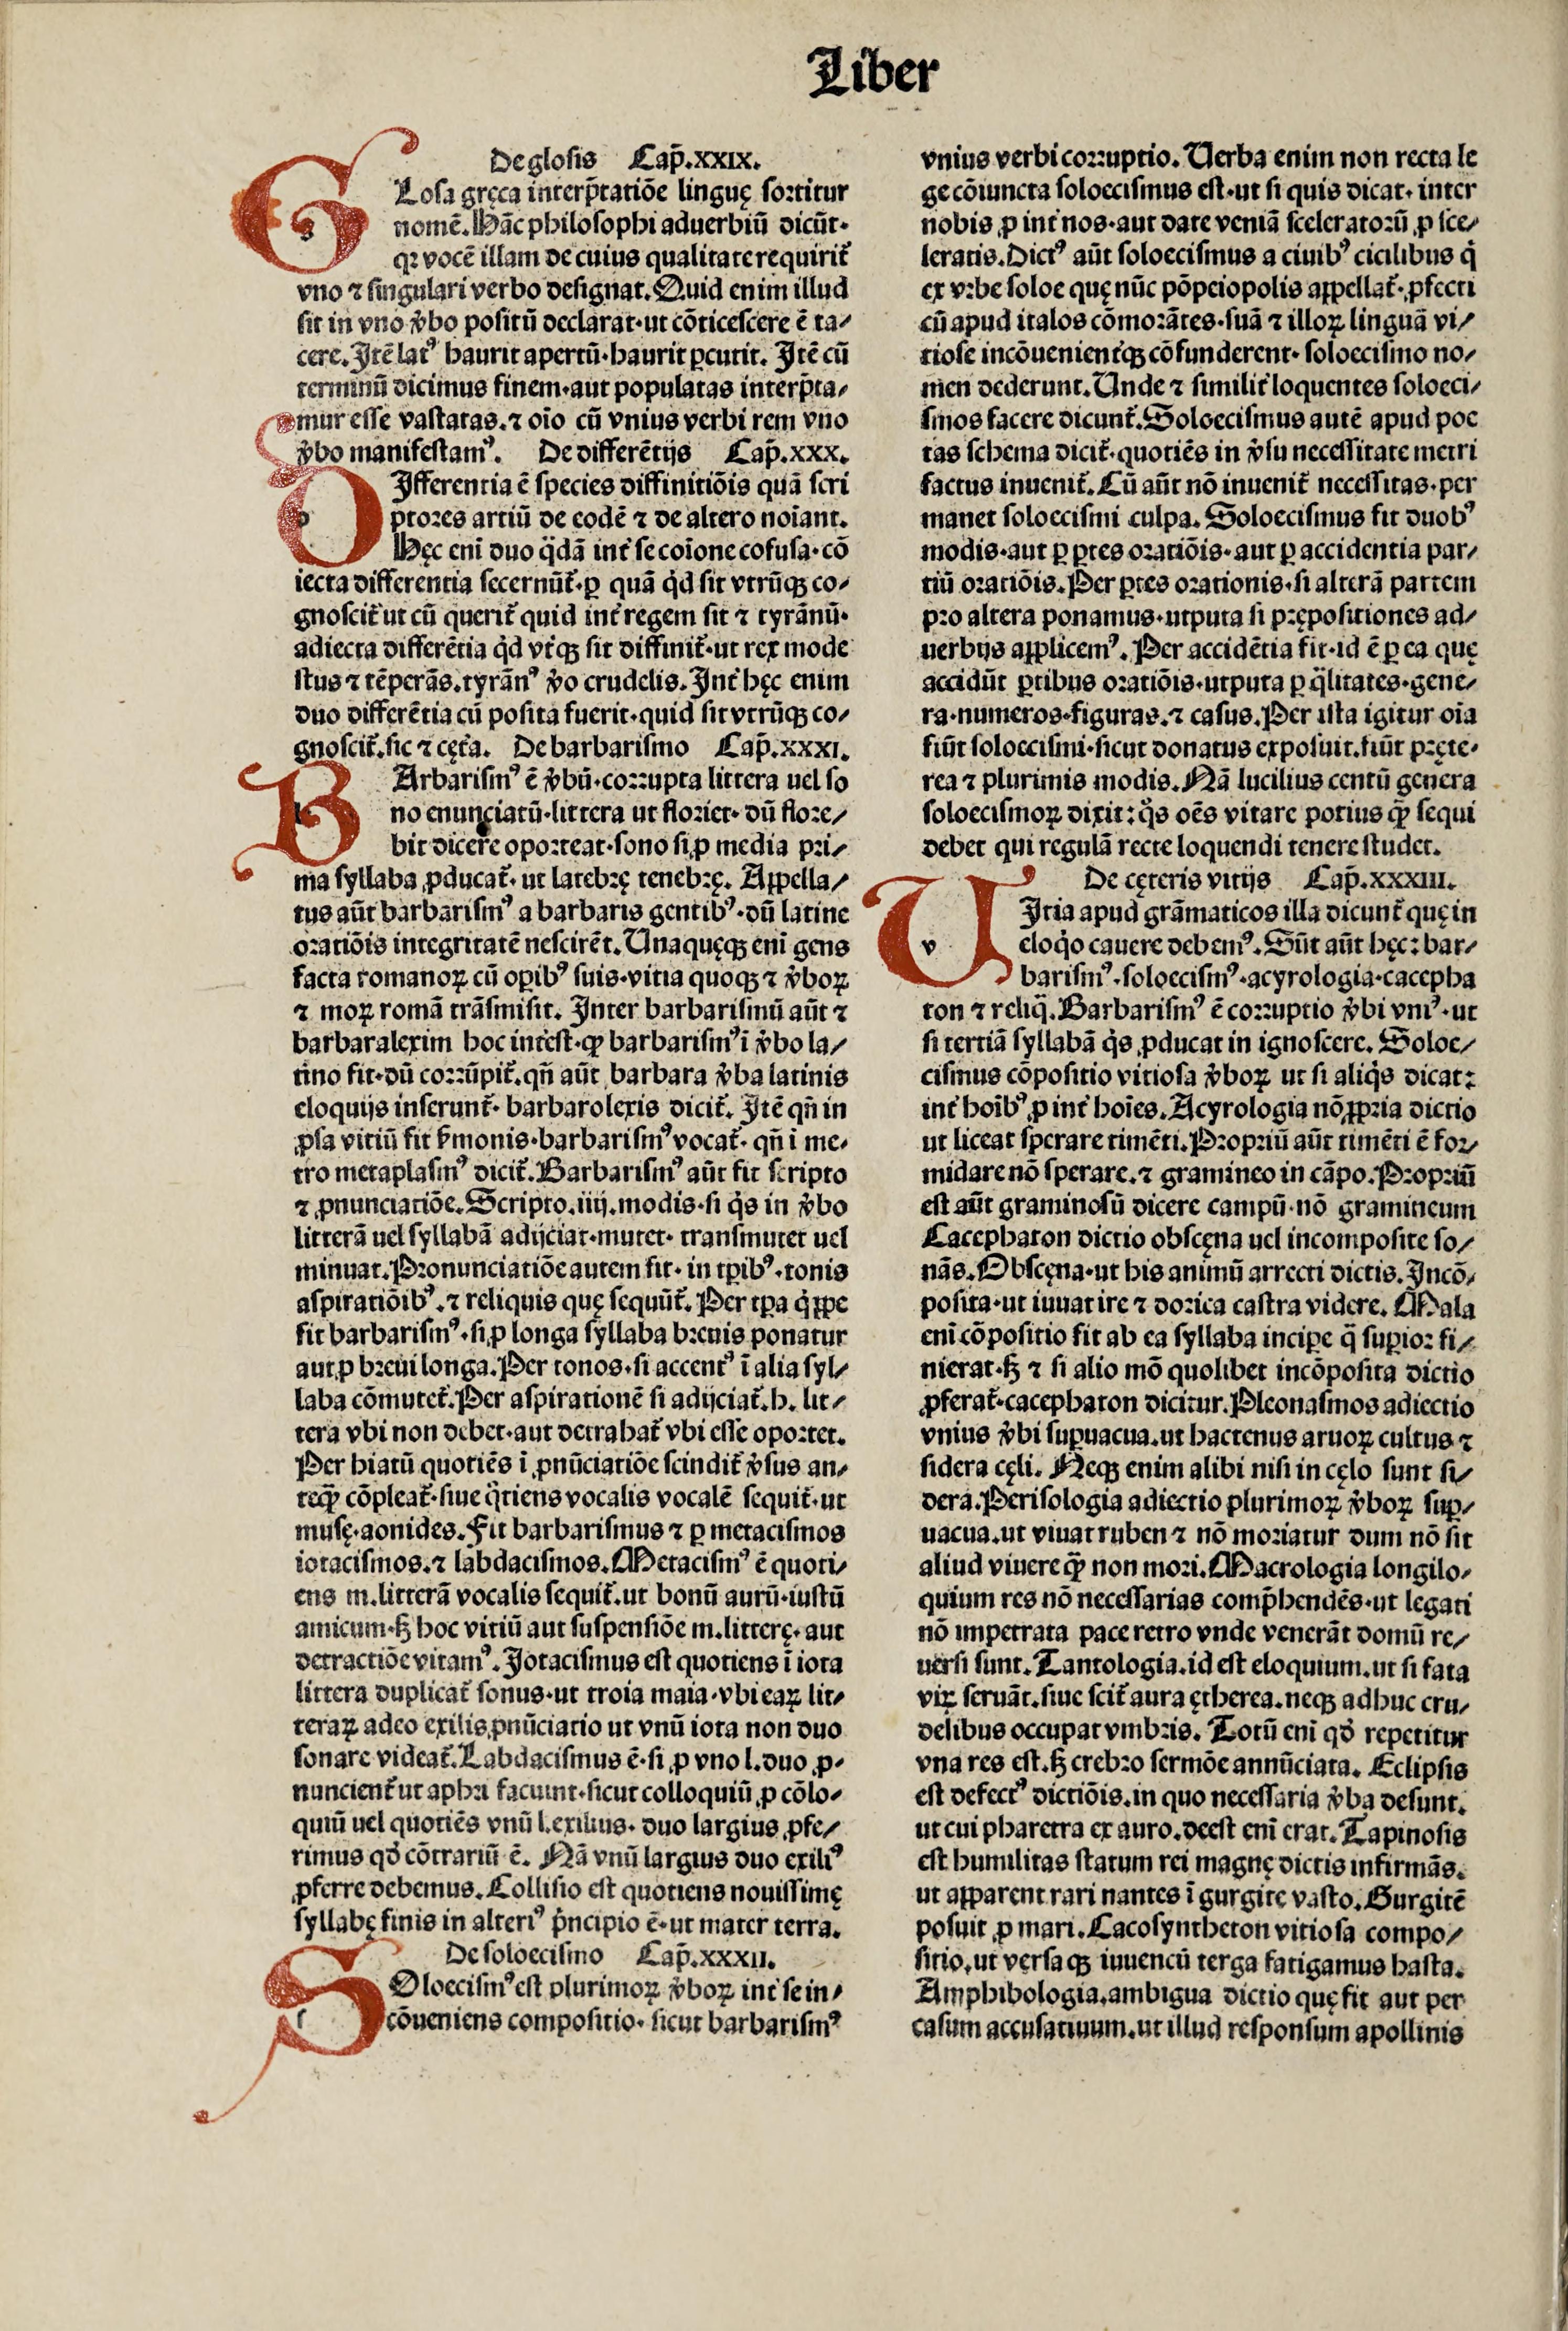 Liber
De glosis Cap̄.XXIX.
GLosa gręca interp̄tatiōe linguę sortitur
nomē. Hāc philosophi aduerbiū dicūt·
qꝛ vocē illam de cuius qualitate requirit᷑
vno ⁊ singulari verbo designat. Quid enim illud
sit in vno v̾bo positū declarat·ut cōticescere ē ta⸗
cere. Itē lat᷒ haurit apertū·haurit ꝑcutit. Itē cū
terminū dicimus finem·aut populatas interp̄ta⸗
mur esse vastatas.⁊ oīo cū vnius verbi rem vno
v̾bo manifestam᷒. De differētijs Cap̄.XXX.
DIfferentia ē species diffinitiōis quā scri
ptores artiū de eodē ⁊ de altero noīant.
Hęc enī duo q̈dā int᷑ se coīone cōfusa·cō
iecta differentia secernūt᷑·ꝑ quā qd̓ sit vtrūqꝫ co⸗
gnoscit᷑ ut cū querit᷑ quid int᷑ regem sit ⁊ tyrānū·
adiecta differētia qd̓ vt᷑qꝫ sit diffinit᷑·ut rex mode
stus ⁊ tēperās.tyrān᷒ v̾o crudelis. Int᷑ hęc enim
duo differētia cū posita fuerit·quid sit vtrūqꝫ co⸗
gnoscit᷑.sic ⁊ cęt᷑a. De barbarismo Cap̄.XXXI.
BArbarism᷒ ē v̾bū·corrupta littera uel so
no enunciatū·littera ut floriet· dū flore⸗
bit dicere oporteat·sono si ꝓ media pri⸗
ma syllaba ꝓducat᷑· ut latebrę tenebrę. Appella⸗
tus aūt barbarism᷒ a barbaris gentib᷒·dū latine
oratiōis integritatē nescirēt. Unaquęqꝫ enī gens
facta romanoꝝ cū opib᷒ suis·vitia quoqꝫ ⁊ v̾boꝝ
⁊ moꝝ romā trāsmisit. Inter barbarismū aūt ⁊
barbaralexim hoc int᷑est·ꝙ barbarism᷒ ī v̾bo la⸗
tino fit·dū corrūpit᷑.qn̄ aūt barbara v̾ba latinis
eloquijs inserunt᷑· barbarolexis dicit᷑. Itē qn̄ in
ꝓsa vitiū fit s̾monis·barbarism᷒ vocat᷑· qn̄ ī me⸗
tro metaplasm᷒ dicit᷑. Barbarism᷒ aūt fit scripto
⁊ ꝓnunciatiōe. Scripto.iiij.modis·si q̓s in v̾bo
litterā uel syllabā adijciat·mutet· transmutet uel
minuat. Pronunciatiōe autem fit· in tꝑib᷒·tonis
aspiratiōib᷒.⁊ reliquis quę sequūt᷑. Per tꝑa q̓ppe
fit barbarism᷒·si ꝓ longa syllaba breuis ponatur
aut ꝓ breui longa. Per tonos·si accent᷒ ī alia syl⸗
laba cōmutet᷑. Per aspirationē si adijciat᷑.h. lit⸗
tera vbi non debet·aut detrahat᷑ vbi esse oportet.
Per hiatū quotiēs ī ꝓnūciatiōe scindit᷑ v̾sus an⸗
teqꝙ̄ cōpleat᷑·siue q̓tiens vocalis vocalē sequit᷑·ut
musę·aonides. Fit barbarismus ⁊ ꝑ metacismos
iotacismos.⁊ labdacismos. Metacism᷒ ē quoti⸗
ens m.litterā vocalis sequit᷑.ut bonū aurū·iustū
amicum·ꝫ hoc vitiū aut suspensiōe m.litterę· aut
detractiōe vitam᷒. Iotacismus est quotiens ī iota
littera duplicat᷑ sonus·ut troia maia·vbi eaꝝ lit⸗
teraꝝ adeo exilis ꝓnūciatio ut vnū iota non duo
sonare videat᷑. Labdacismus ē·si ꝓ vno l.duo ꝓ⸗
nuncient᷑ ut aphri faciunt·sicut colloquiū ꝓ cōlo⸗
quiū uel quotiēs vnū l.exilius· duo largius ꝓfe⸗
rimus qd̓ cōtrariū ē. Nā vnū largius duo exili᷒
ꝓferre debemus. Collisio est quotiens nouissimę
syllabę finis in alteri᷒ p̓ncipio ē·ut mater terra.
De soloecismo Cap̄.XXXII.
SOloecism᷒ est plurimoꝝ v̾boꝝ int᷑ se in⸗
cōueniens compositio· sicut barbarism᷒
vnius verbi corruptio. Uerba enim non recta le
ge cōiuncta soloecismus est·ut si quis dicat· inter
nobis ꝓ int᷑ nos·aut date veniā sceleratorū ꝓ sce⸗
leratis. Dict᷒ aūt soloecismus a ciuib᷒ cicilibus q̓
ex vrbe soloe quę nūc pōpeiopolis appellat᷑·ꝓfecti
cū apud italos cōmorātes·suā ⁊ illoꝝ linguā vi⸗
tiose incōuenient᷑qꝫ cōfunderent· soloecismo no⸗
men dederunt. Unde ⁊ similit᷑ loquentes soloeci⸗
smos facere dicunt᷑. Soloecismus autē apud poe
tas schema dicit᷑·quotiēs in v̾su necessitate metri
factus inuenit᷑. Cū aūt nō inuenit᷑ necessitas·per
manet soloecismi culpa. Soloecismus fit duob᷒
modis·aut ꝑ ꝑtes oratiōis·aut ꝑ accidentia par⸗
tiū oratiōis. Per ꝑtes orationis·si alterā partem
pro altera ponamus·utputa si prępositiones ad⸗
uerbijs applicem᷒. Per accidētia fit·id ē ꝑ ea quę
accidūt ꝑtibus oratiōis·utputa ꝑ q̈litates·gene⸗
ra·numeros·figuras.⁊ casus. Per ista igitur oīa
fiūt soloecismi·sicut donatus exposuit.fiūt pręte⸗
rea ⁊ plurimis modis. Nā lucilius centū genera
soloecismoꝝ dixit: q̓s oēs vitare potius qꝙ̄ sequi
debet qui regulā recte loquendi tenere studet.
De cęteris vitijs Cap̄.XXXIII.
UItia apud grāmaticos illa dicunt᷑ quę in
eloq̓o cauere debem᷒. Sūt aūt hęc: bar⸗
barism᷒·soloecism᷒·acyrologia·cacepha
ton ⁊ reliq̄. Barbarism᷒ ē corruptio v̾bi vni᷒·ut
si tertiā syllabā q̓s ꝓducat in ignoscere. Soloe⸗
cismus cōpositio vitiosa v̾boꝝ ut si aliq̓s dicat:
int᷑ hoīb᷒ ꝓ int᷑ hoīes. Acyrologia nō ꝓpria dictio
ut liceat sperare timēti. Propriū aūt timēti ē for⸗
midare nō sperare.⁊ gramineo in cāpo. Propriū
est aūt graminosū dicere campū·nō gramineum
Cacephaton dictio obscęna uel incomposite so⸗
nās. Obscęna·ut his animū arrecti dictis. Incō⸗
posita·ut iuuat ire ⁊ dorica castra videre. Mala
enī cōpositio fit ab ea syllaba incipe q̄ supior fi⸗
nierat·ꝫ ⁊ si alio mō quolibet incōposita dictio
ꝓferat᷑·cacephaton dicitur. Pleonasmos adiectio
vnius v̾bi suꝑuacua.ut hactenus aruoꝝ cultus ⁊
sidera cęli. Neqꝫ enim alibi nisi in cęlo sunt si⸗
dera. Perisologia adiectio plurimoꝝ v̾boꝝ suꝑ⸗
uacua.ut viuat ruben ⁊ nō moriatur dum nō sit
aliud viuere qꝙ̄ non mori. Macrologia longilo⸗
quium res nō necessarias comp̄hendēs·ut legati
nō impetrata pace retro vnde venerāt domū re⸗
uersi sunt. Tantologia.id est eloquium.ut si fata
viꝝ seruāt.siue scit᷑ aura ętherea.neqꝫ adhuc cru⸗
delibus occupat vmbris. Totū enī qd̓ repetitur
vna res est.ꝫ crebro sermōe annūciata. Eclipsis
est defect᷒ dictiōis.in quo necessaria v̾ba desunt.
ut cui pharetra ex auro.deest enī erat. Tapinosis
est humilitas statum rei magnę dictis infirmās.
ut apparent rari nantes ī gurgite vasto. Gurgitē
posuit ꝓ mari. Cacosyntheton vitiosa compo⸗
sitio.ut versaqꝫ iuuencū terga fatigamus hasta.
Amphibologia.ambigua dictio quę fit aut per
casum accusatiuum.ut illud responsum apollinis